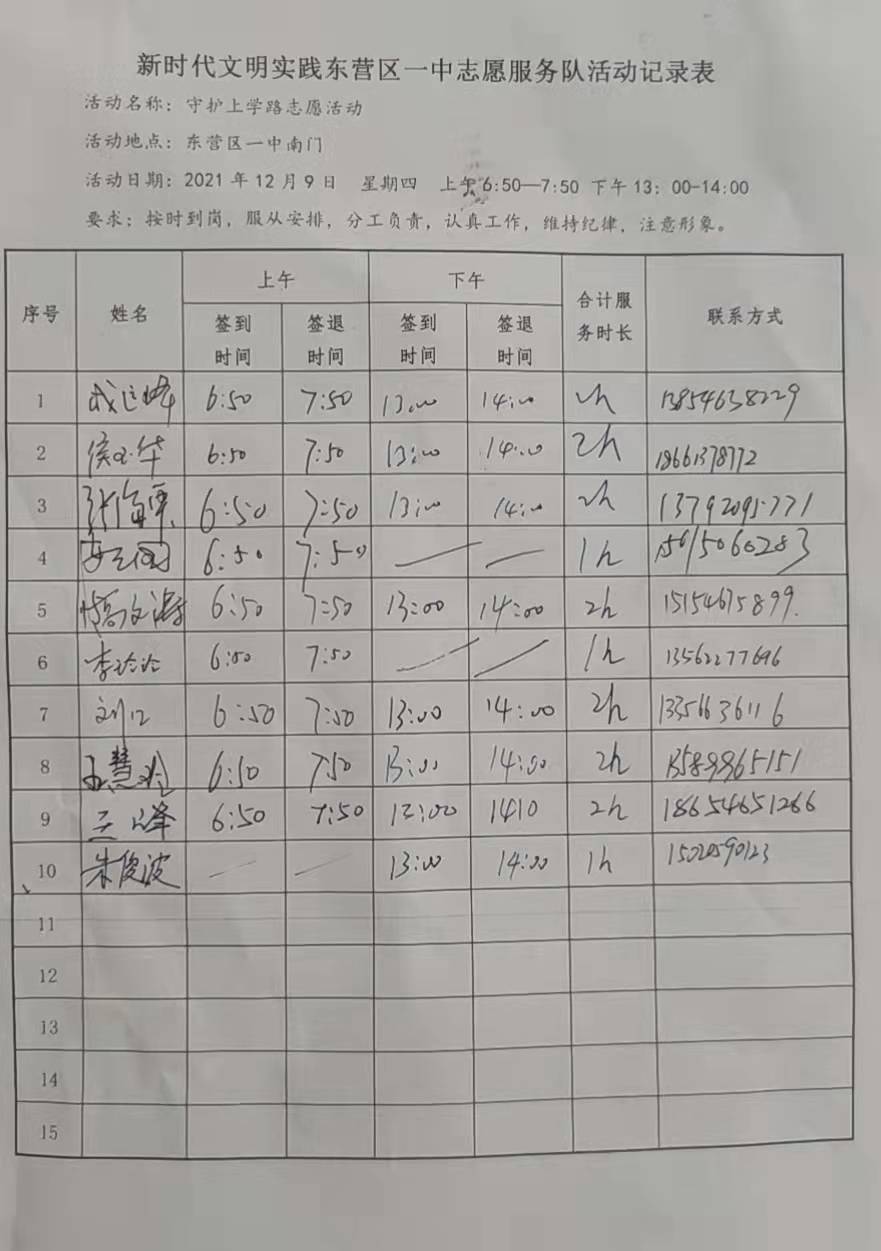 新时代文明实践东营区一中志愿服务队活动记录表
活动名称：守护上学路志愿活动
活动地点：东营区一中南门
活动日期：2021年12月9日 星期四 上午6:50—7:50 下午13：00-14:00
要求：按时到岗，服从安排，分工负责，认真工作，维持纪律，注意形象。
序号 姓名 上午 下午 合计服务时长 联系方式
签到时间 签退时间 签到时间 签退时间
1 6:50 7:50 13:00 14:00 2h 13854638229
2 6:50 7:50 13:00 14:00 2h 18661378772
3 6:50 7:50 13:00 14:00 2h 13792095771
4 6:50 7:50 — — 1h 15615060283
5 6:50 7:50 13:00 14:00 2h 15154675899.
6 李玲玲 6:50 7:50 — — 1h 13562277696
7 6:50 7:50 13:00 14:00 2h 13356636116
8 王慧玲 6:50 7:50 13:00 14:00 2h 13589965151
9 6:50 7:50 13:00 1410 2h 18654651266
10 朱俊波 — — 13:00 14:00 1h 15020590123
11
12
13
14
15